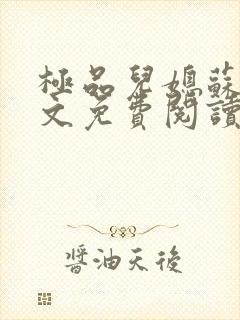 極品兒媳蘇
文免費閱讀
醬油天後